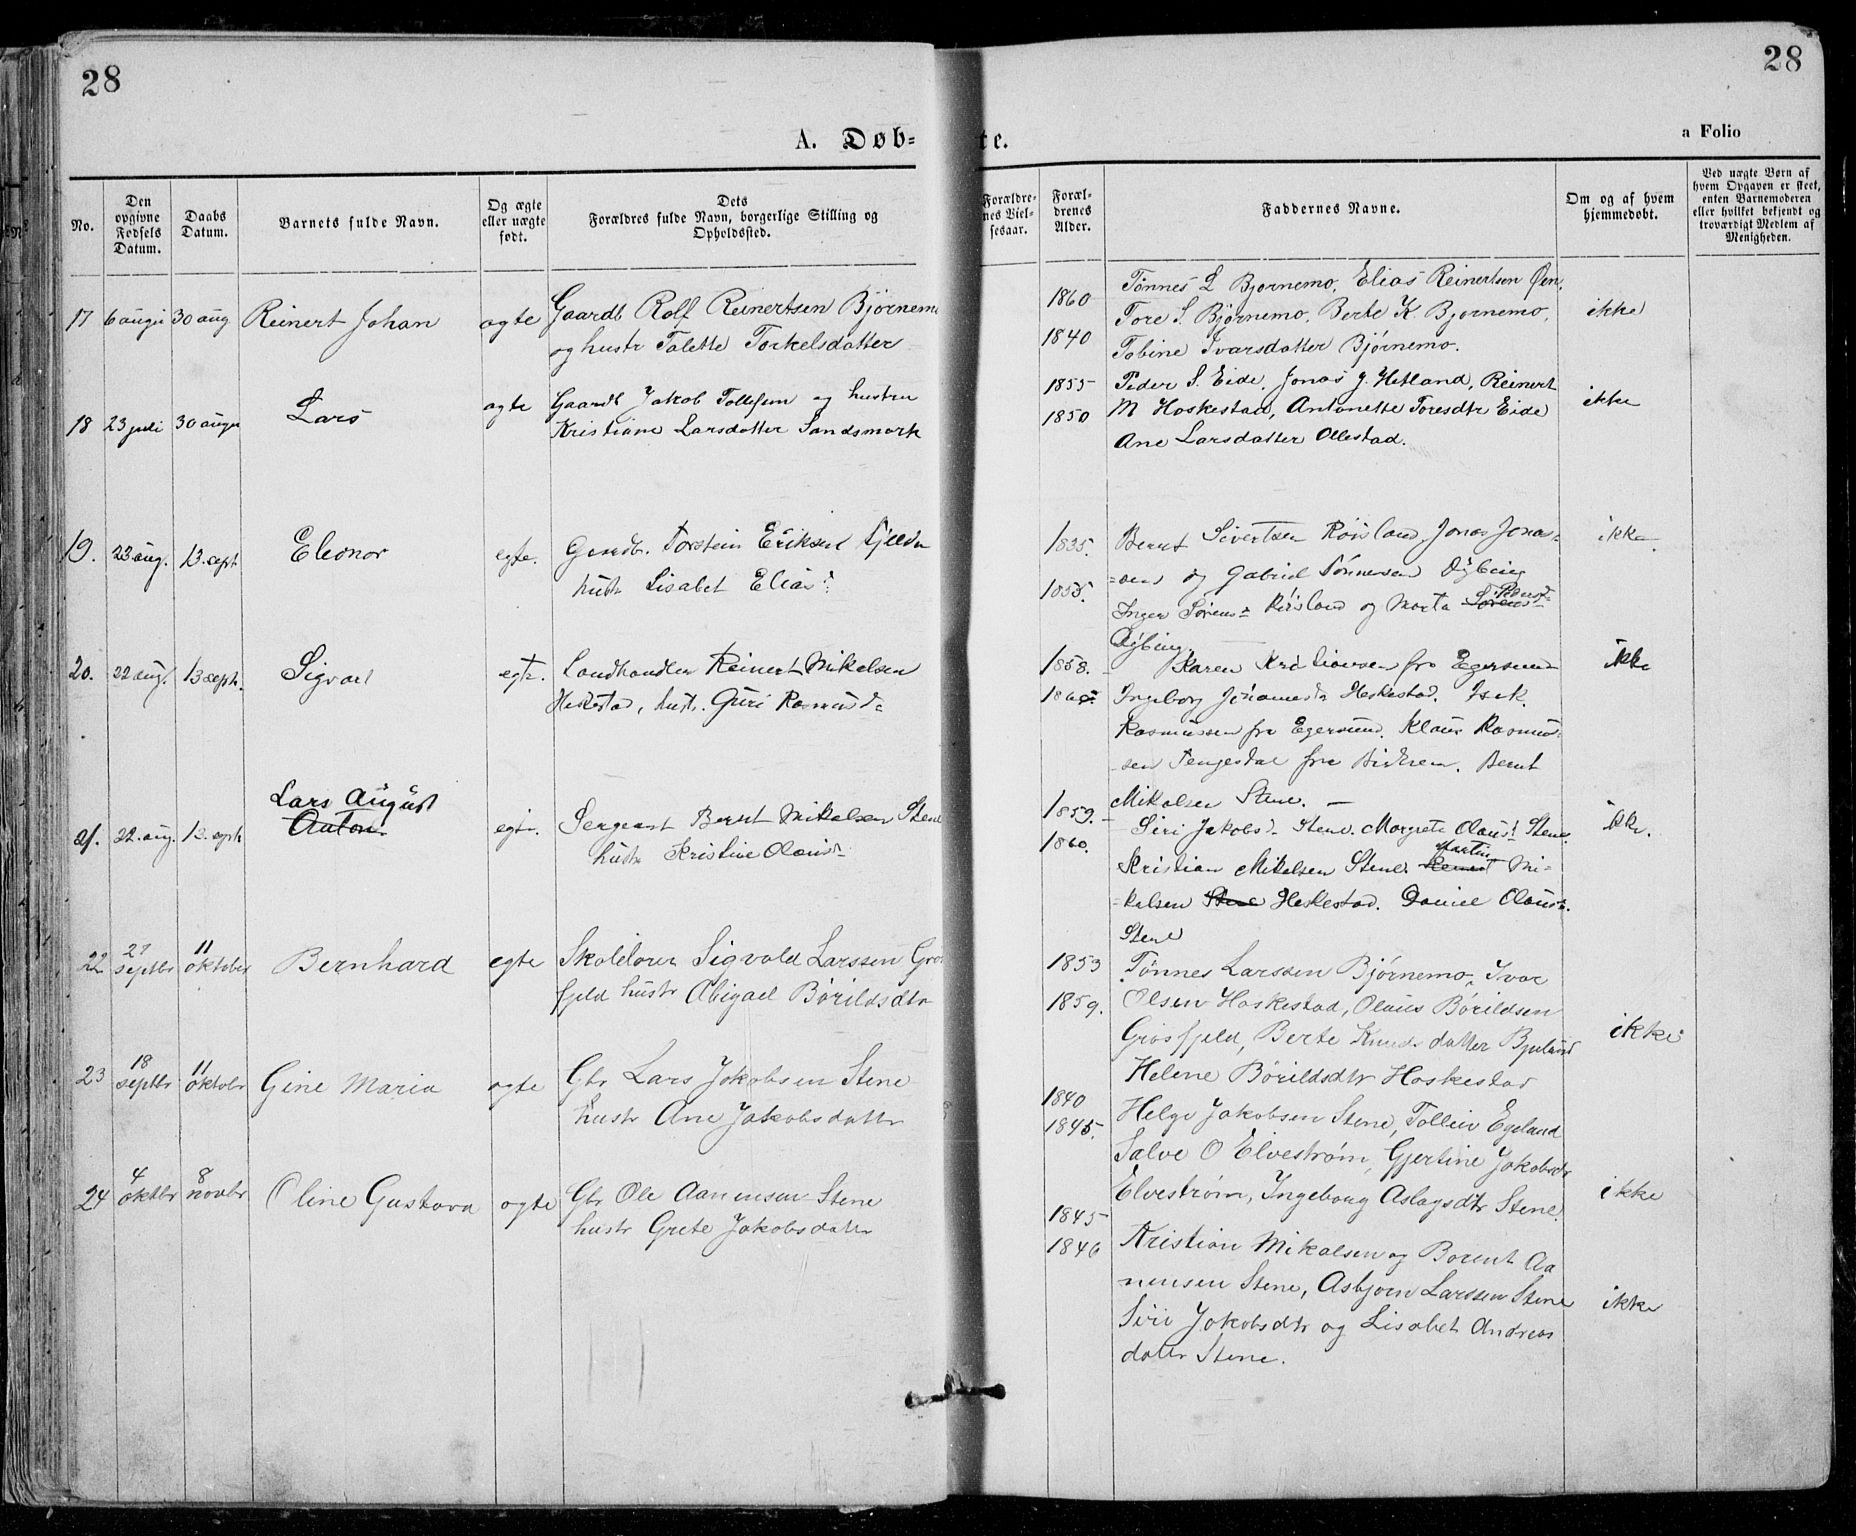 28
28
A. Døb-
te.
a Folio
No.
Den opgivne Fødsels Datum.
Daabs Datum.
Barnets fulde Navn.
Og ægte eller uægte født.
Dets Forældres fulde Navn, borgerlige Stilling og Opholdssted.
Forældrenes Vielsesaar.
Forældrenes Alder.
Faddernes Navne.
Om og af hvem hjemmedøbt.
Ved uægte Børn af hvem Opgaven er skeet, enten Barnemoderen eller hvilket bekjendt og troværdigt Medlem af Menigheden.
17 6 augu 30 aug Reinert Johan ægte Gaardb Rolf Reinertsen Bjørnemo
og hustr Talette Torkelsdatter
1860
1840
Tønnes L Bjørnemo, Elias Reinertsen Øen,
Tore S. Bjørnemo, Berte K. Bjørnemo,
Tobine Ivarsdatter Bjørnemo.
ikke
18 23 juli 30 augu Lars ægte Gaardb Jakob Tollefsen og hustru
Kristiane Larsdatter Sandsmark
1855
1850
Peder S. Eide, Jonas J. Hetland, Reinert
M Heskestad, Antonette Toresdtr Eide
Ane Larsdatter Ollestad.
ikke
19. 23 aug. 13. sept Eleonor egte. Gaardb. Torstein Eriksen
hustr Lisabet Elias
1835.
1855.
Bernt Sivertsen Røisland, Jonas Jonas=
=sens og Gabriel Tønnesen Dybing
Inger Sørens Røisland og Marta Sørens
Dybing.
ikke.
20. 22 aug. 13 sept. Sigvart egte. Landhandler Reinert Mikalsen
Heskestad, hustr. Guri Rasmusd
1858.
Karen Kristiansen fra Egersund
Ingeborg Johannesd Heskestad. Isak
Rasmussen fra Egersund. Klaus Rasmus=
=sen Tengesdal fra Birkrem. Bernt
Mikalsen Stene. —
ikke
21. 22. aug. 13. sept Lars August
Anton
egte. Sergeant Bernt Mikalsen Stene
hustr Kristine Olausd
1859.
1860.
Siri Jakobsd Stene. Margrete Olausd Stene.
Kristian Mikalsen Stene. Martin Mi=
=kalsen Stene Heskestad. Daniel Olausen.
Stene
ikke.
22 27 septbr 11 oktober Bernhard egte Skolelærer Sigvald Larssen Gros
fjeld hustr Abigael Børildsdtr
1853
1859.
Tønnes Larssen Bjørnemo, Ivar
Olsen Heskestad, Olaus Børildsen
Grosfjeld, Berte Knudsdatter Bjuland
Helene Børildsdtr Heskestad
ikke
23 18 septbr 11 oktobr Gine Maria ægte Gbr Lars Jakobsen Stene
hustr Ane Jakobsdattr
1840
1845.
Helge Jakobsen Stene, Tolleiv Egeland
Salve O Elvestrøm, Gjertine Jakobsdtr
Elvestrøm, Ingeborg Aslagsdtr Stene.
ikke
24 4 oktbr 8 novbr Oline Gustava ægte Gbr Ole Aanensen Stene
hustr Grete Jakobsdattr
1845
1846
Kristian Mikalsen og Borent Aa
nensen Stene, Asbjørn Larssen Stene
Siri Jakobsdtr og Lisabet Andreas
dattr Stene.
ikke